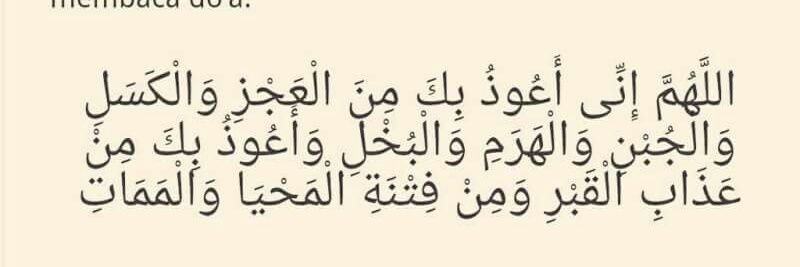 membaca do'a:
اللَّهُمَّ إِنِّى أَعُوذُ بِكَ مِنَ الْعَجْزِ وَالْكَسَلِ
وَالْجُبْنِ وَالْهَرَمِ وَالْبُخْلِ وَأَعُوذُ بِكَ مِنْ
عَذَابِ الْقَبْرِ وَمِنْ فِتْنَةِ الْمَحْيَا وَالْمَمَاتِ